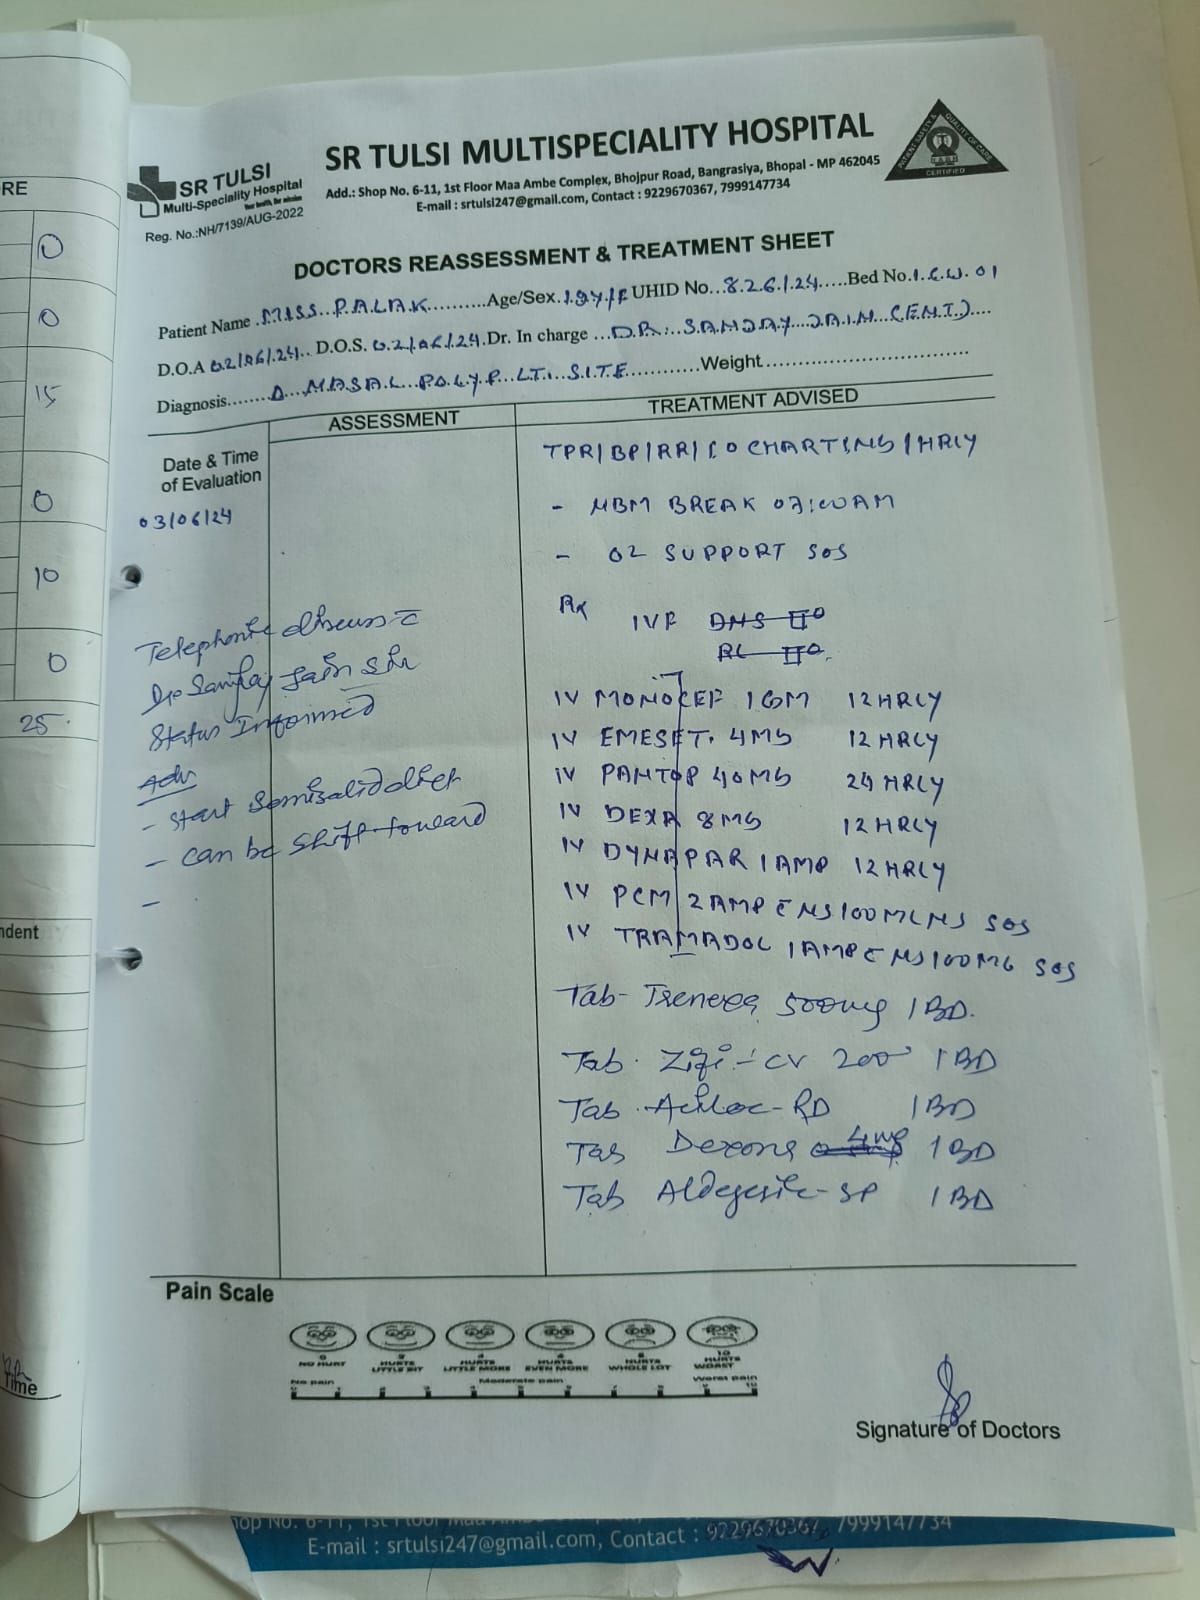 SR TULSI
Multi-Speciality Hospital
Your health, Our mission
Reg. No.:NH/7139/AUG-2022
SR TULSI MULTISPECIALITY HOSPITAL
Add.: Shop No. 6-11, 1st Floor Maa Ambe Complex, Bhojpur Road, Bangrasiya, Bhopal - MP 462045
E-mail : srtulsi247@gmail.com, Contact : 9229670367, 7999147734
PATIENT SAFETY & QUALITY OF CARE
CERTIFIED
DOCTORS REASSESSMENT & TREATMENT SHEET
Patient Name MISS PALAK Age/Sex 19Y/F UHID No. 826/24 Bed No. I.C.U. 01
D.O.A 02/06/24 D.O.S. 02/06/24 Dr. In charge DR. SANJAY JAIN (ENT)
Diagnosis NASAL POLYP LT. SITE Weight
ASSESSMENT
TREATMENT ADVISED
Date & Time
of Evaluation
03/06/24
Telephonic discuss c̄
Dr Sanjay Jain Sir
Status Informed
Adv
- Start Semisolid diet
- can be shift toward
-
TPR/BP/RR/I O CHARTING/HRLY
- NBM BREAK 07:00AM
- O2 SUPPORT SOS
Rx IVF DNS II
RL II
IV MONOCEF 1GM 12HRLY
IV EMESET 4MG 12HRLY
IV PANTOP 40MG 24HRLY
IV DEXA 8MG 12HRLY
IV DYNAPAR 1AMP 12HRLY
IV PCM 2AMP C NS100ML NS SOS
IV TRAMADOL 1AMP C NS100MG SOS
Tab- 500mg 1BD.
Tab. Zifi-CV 200 1BD
Tab. Achloc-RD 1BD
Tab Dexona 4mg 1BD
Tab Aldegesic-SP 1BD
Pain Scale
0 NO HURT
2 HURTS LITTLE BIT
4 HURTS LITTLE MORE
6 HURTS EVEN MORE
8 HURTS WHOLE LOT
10 HURTS WORST
No pain Moderate pain Worst pain
Signature of Doctors
RE
0
0
15
0
10
0
25
ndent
Time
E-mail : srtulsi247@gmail.com, Contact : 9229670367, 7999147734